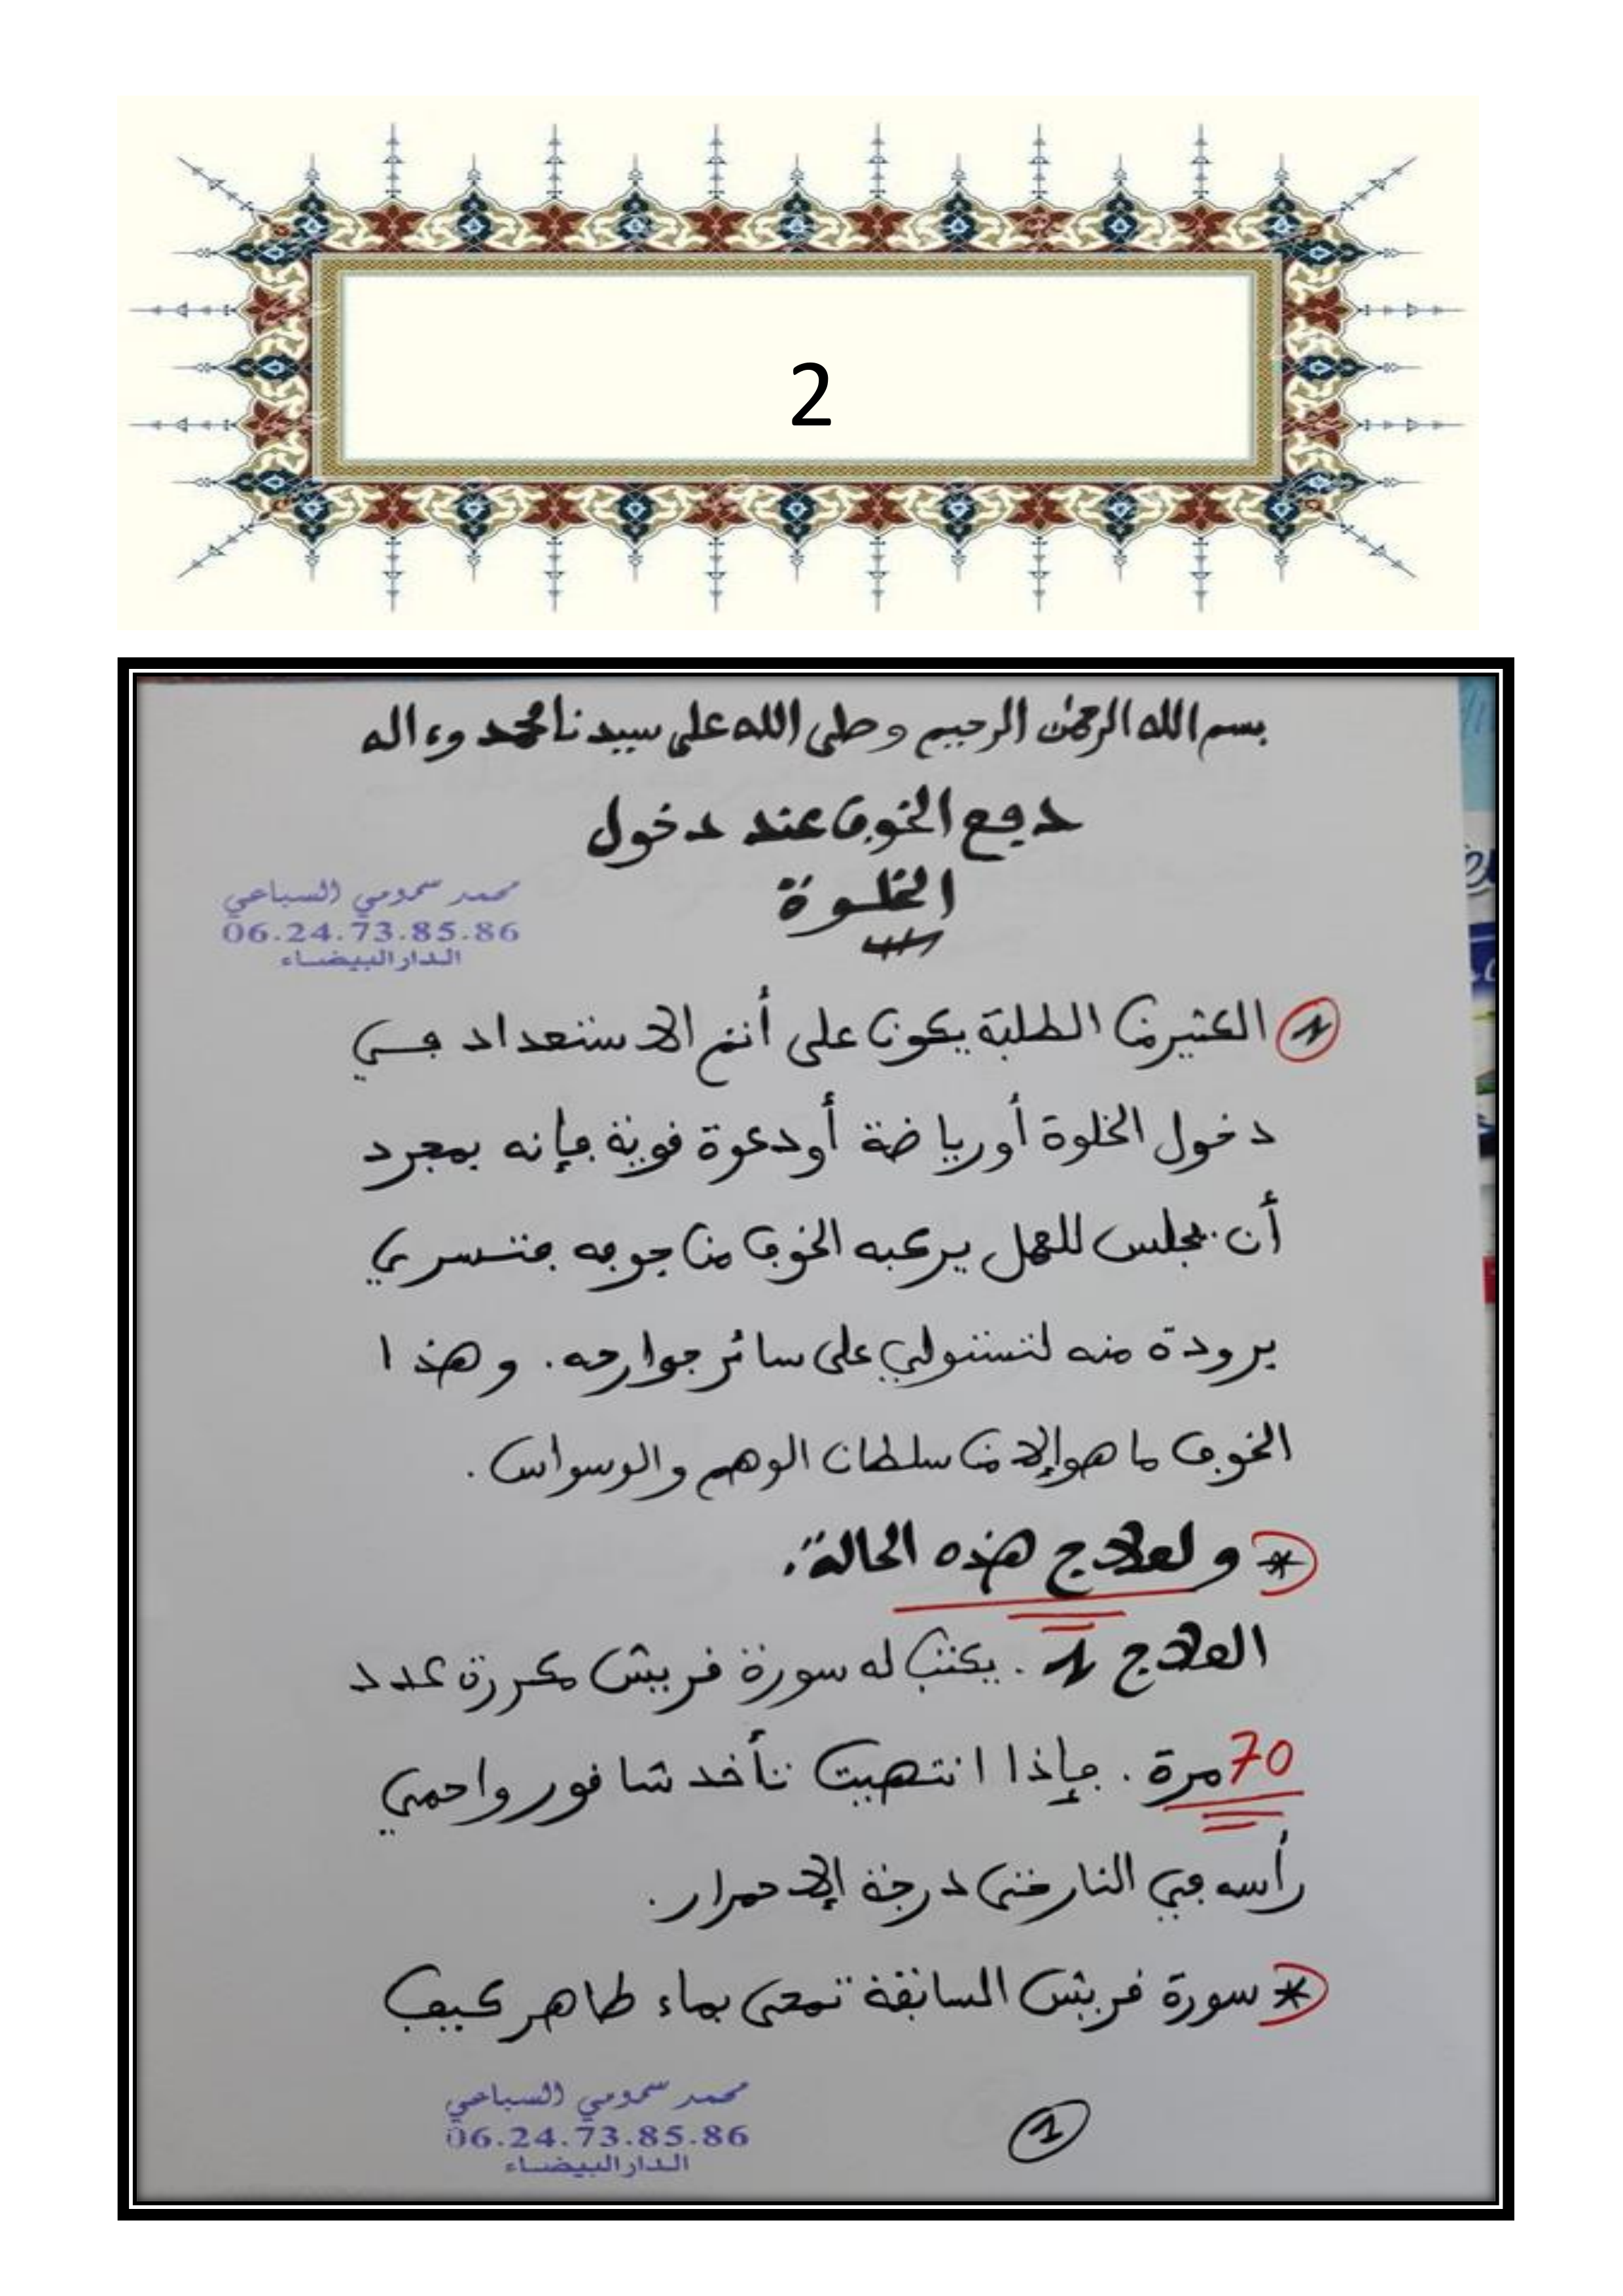 2
بسم الله الرحمن الرحيم وصلى الله على سيدنا محمد وءاله
دفع الخوف عند دخول
الخلوة
محمد سمومي السباعي
06.24.73.85.86
الدار البيضاء
1 الكثير من الطلبة يكون على أتم الاستعداد في
دخول الخلوة أو رياضة أو دعوة قوية فإنه بمجرد
أن يجلس للعمل يركبه الخوف من جوفه فتسري
برودة منه لتستولي على سائر جوارحه. وهذا
الخوف ما هو إلا من سلطان الوهم والوسواس.
* ولعلاج هذه الحالة:
العلاج 1. يكتب له سورة قريش مكررة عدد
70 مرة. فإذا انتهيت تأخد شاقور واحمي
رأسه في النار حتى درجة الإحمرار.
* سورة قريش السابقة تمحى بماء طاهر كيف
محمد سمومي السباعي
06.24.73.85.86
الدار البيضاء
1